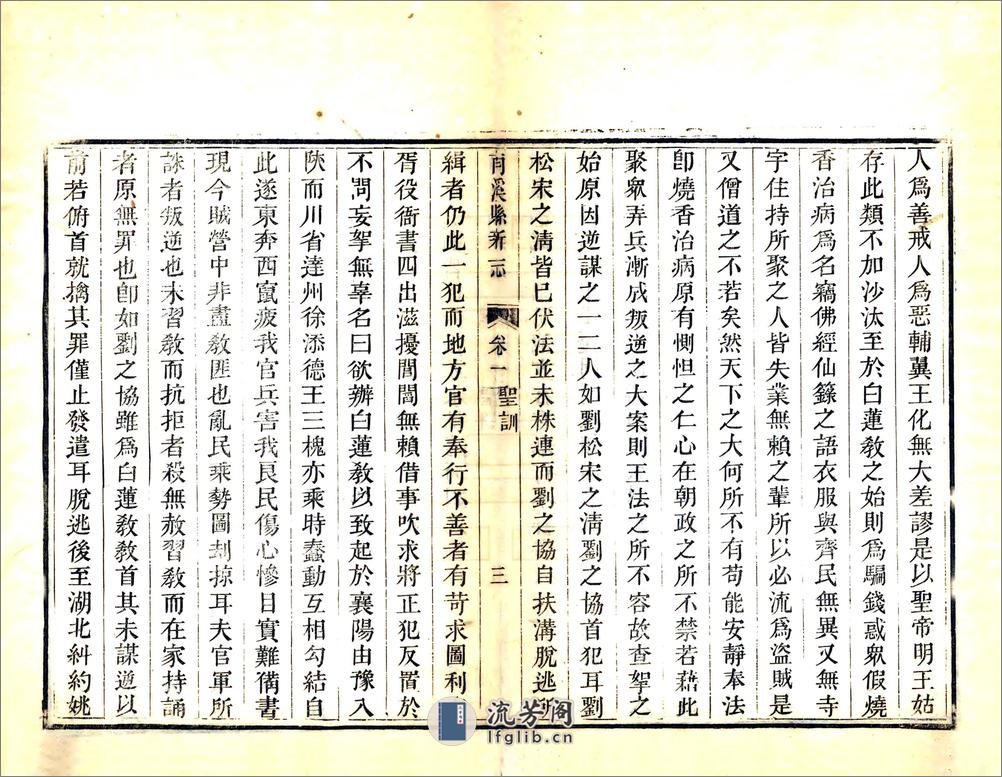 人爲善戒人爲惡輔翼王化無大差謬是以聖帝明王姑
存此類不加沙汰至於白蓮敎之始則爲騙錢惑眾假燒
香治病爲名竊佛經仙籙之語衣服與齊民無異又無寺
宇住持所聚之人皆失業無賴之輩所以必流爲盜賊是
又僧道之不若矣然天下之大何所不有苟能安靜奉法
卽燒香治病原有惻怛之仁心在朝政之所不禁若藉此
聚眾弄兵漸成叛逆之大案則王法之所不容故查拏之
始原因逆謀之一二人如劉松宋之淸劉之協首犯耳劉
松宋之淸皆已伏法並未株連而劉之協自扶溝脫逃所
緝者仍此一犯而地方官有奉行不善者有苛求圖利
胥役衙書四出滋擾閭閻無賴借事吹求將正犯反置於
不問妄拏無辜名曰欲辦白蓮敎以致起於襄陽由豫入
陝而川省達州徐添德王三槐亦乘時蠢動互相勾結自
此遂東奔西竄疲我官兵害我良民傷心慘目實難備書
現今賊營中非盡敎匪也亂民乘勢圖刦掠耳夫官軍所
誅者叛逆也未習敎而抗拒者殺無赦習敎而在家持誦
者原無罪也卽如劉之協雖爲白蓮敎敎首其未謀逆以
前若俯首就擒其罪僅止發遣耳脫逃後至湖北糾約姚
縣新志
卷一
聖訓
三
流芳阁
lfglib.cn